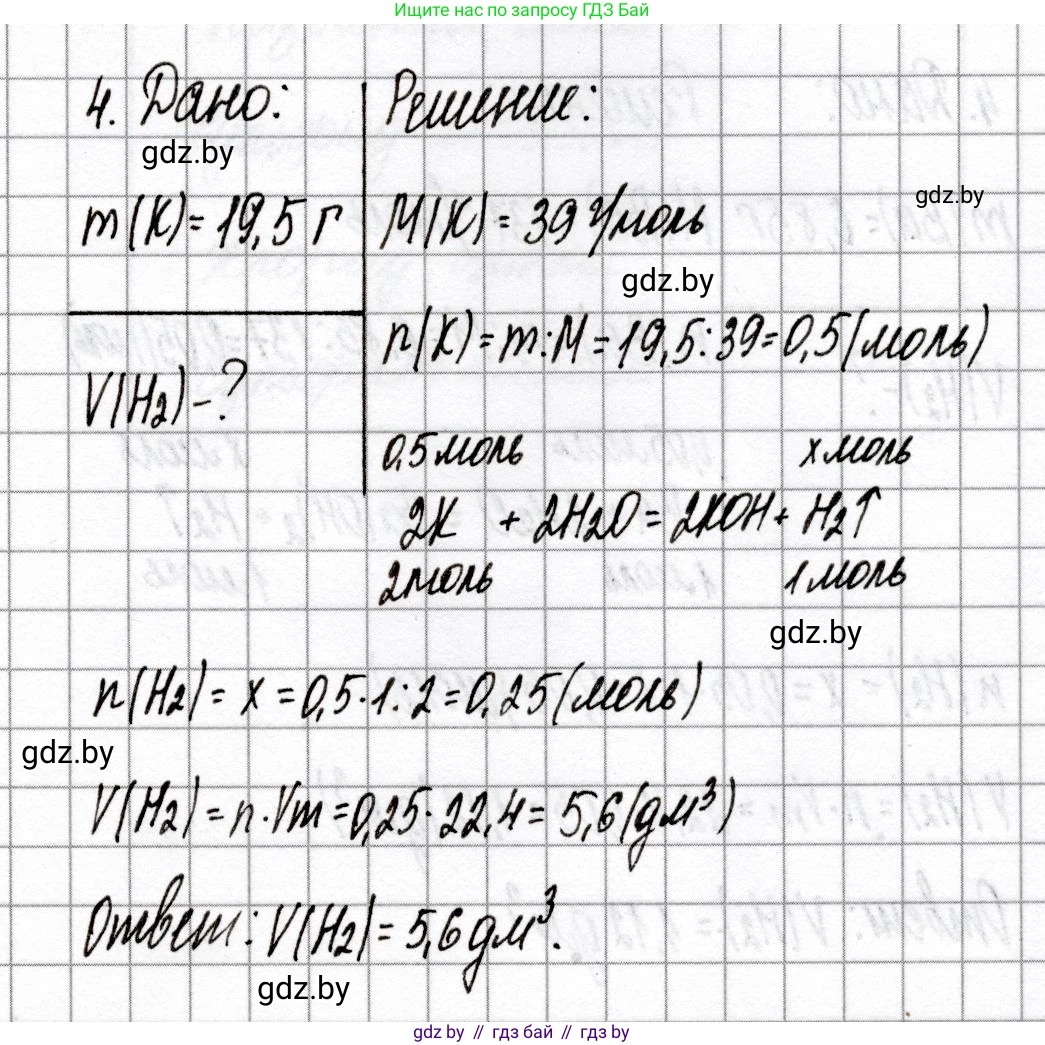 Ищите нас по запросу ГДЗ Бай
4. Дано:
gdz.by
m(K)=19,5 г
V(H₂)-?
Решение:
gdz.by
M(K)=39 г/моль
gdz.by
n(K)=m:M=19,5:39=0,5(моль)
0,5 моль x моль
2K + 2H₂O = 2KOH + H₂↑
2моль 1 моль
gdz.by
n(H₂)= x =0,5·1:2=0,25(моль)
gdz.by
V(H₂)=n·Vm=0,25·22,4=5,6(дм³)
Ответ: V(H₂)=5,6 дм³.
gdz.by
gdz by // гдз бай // гдз by